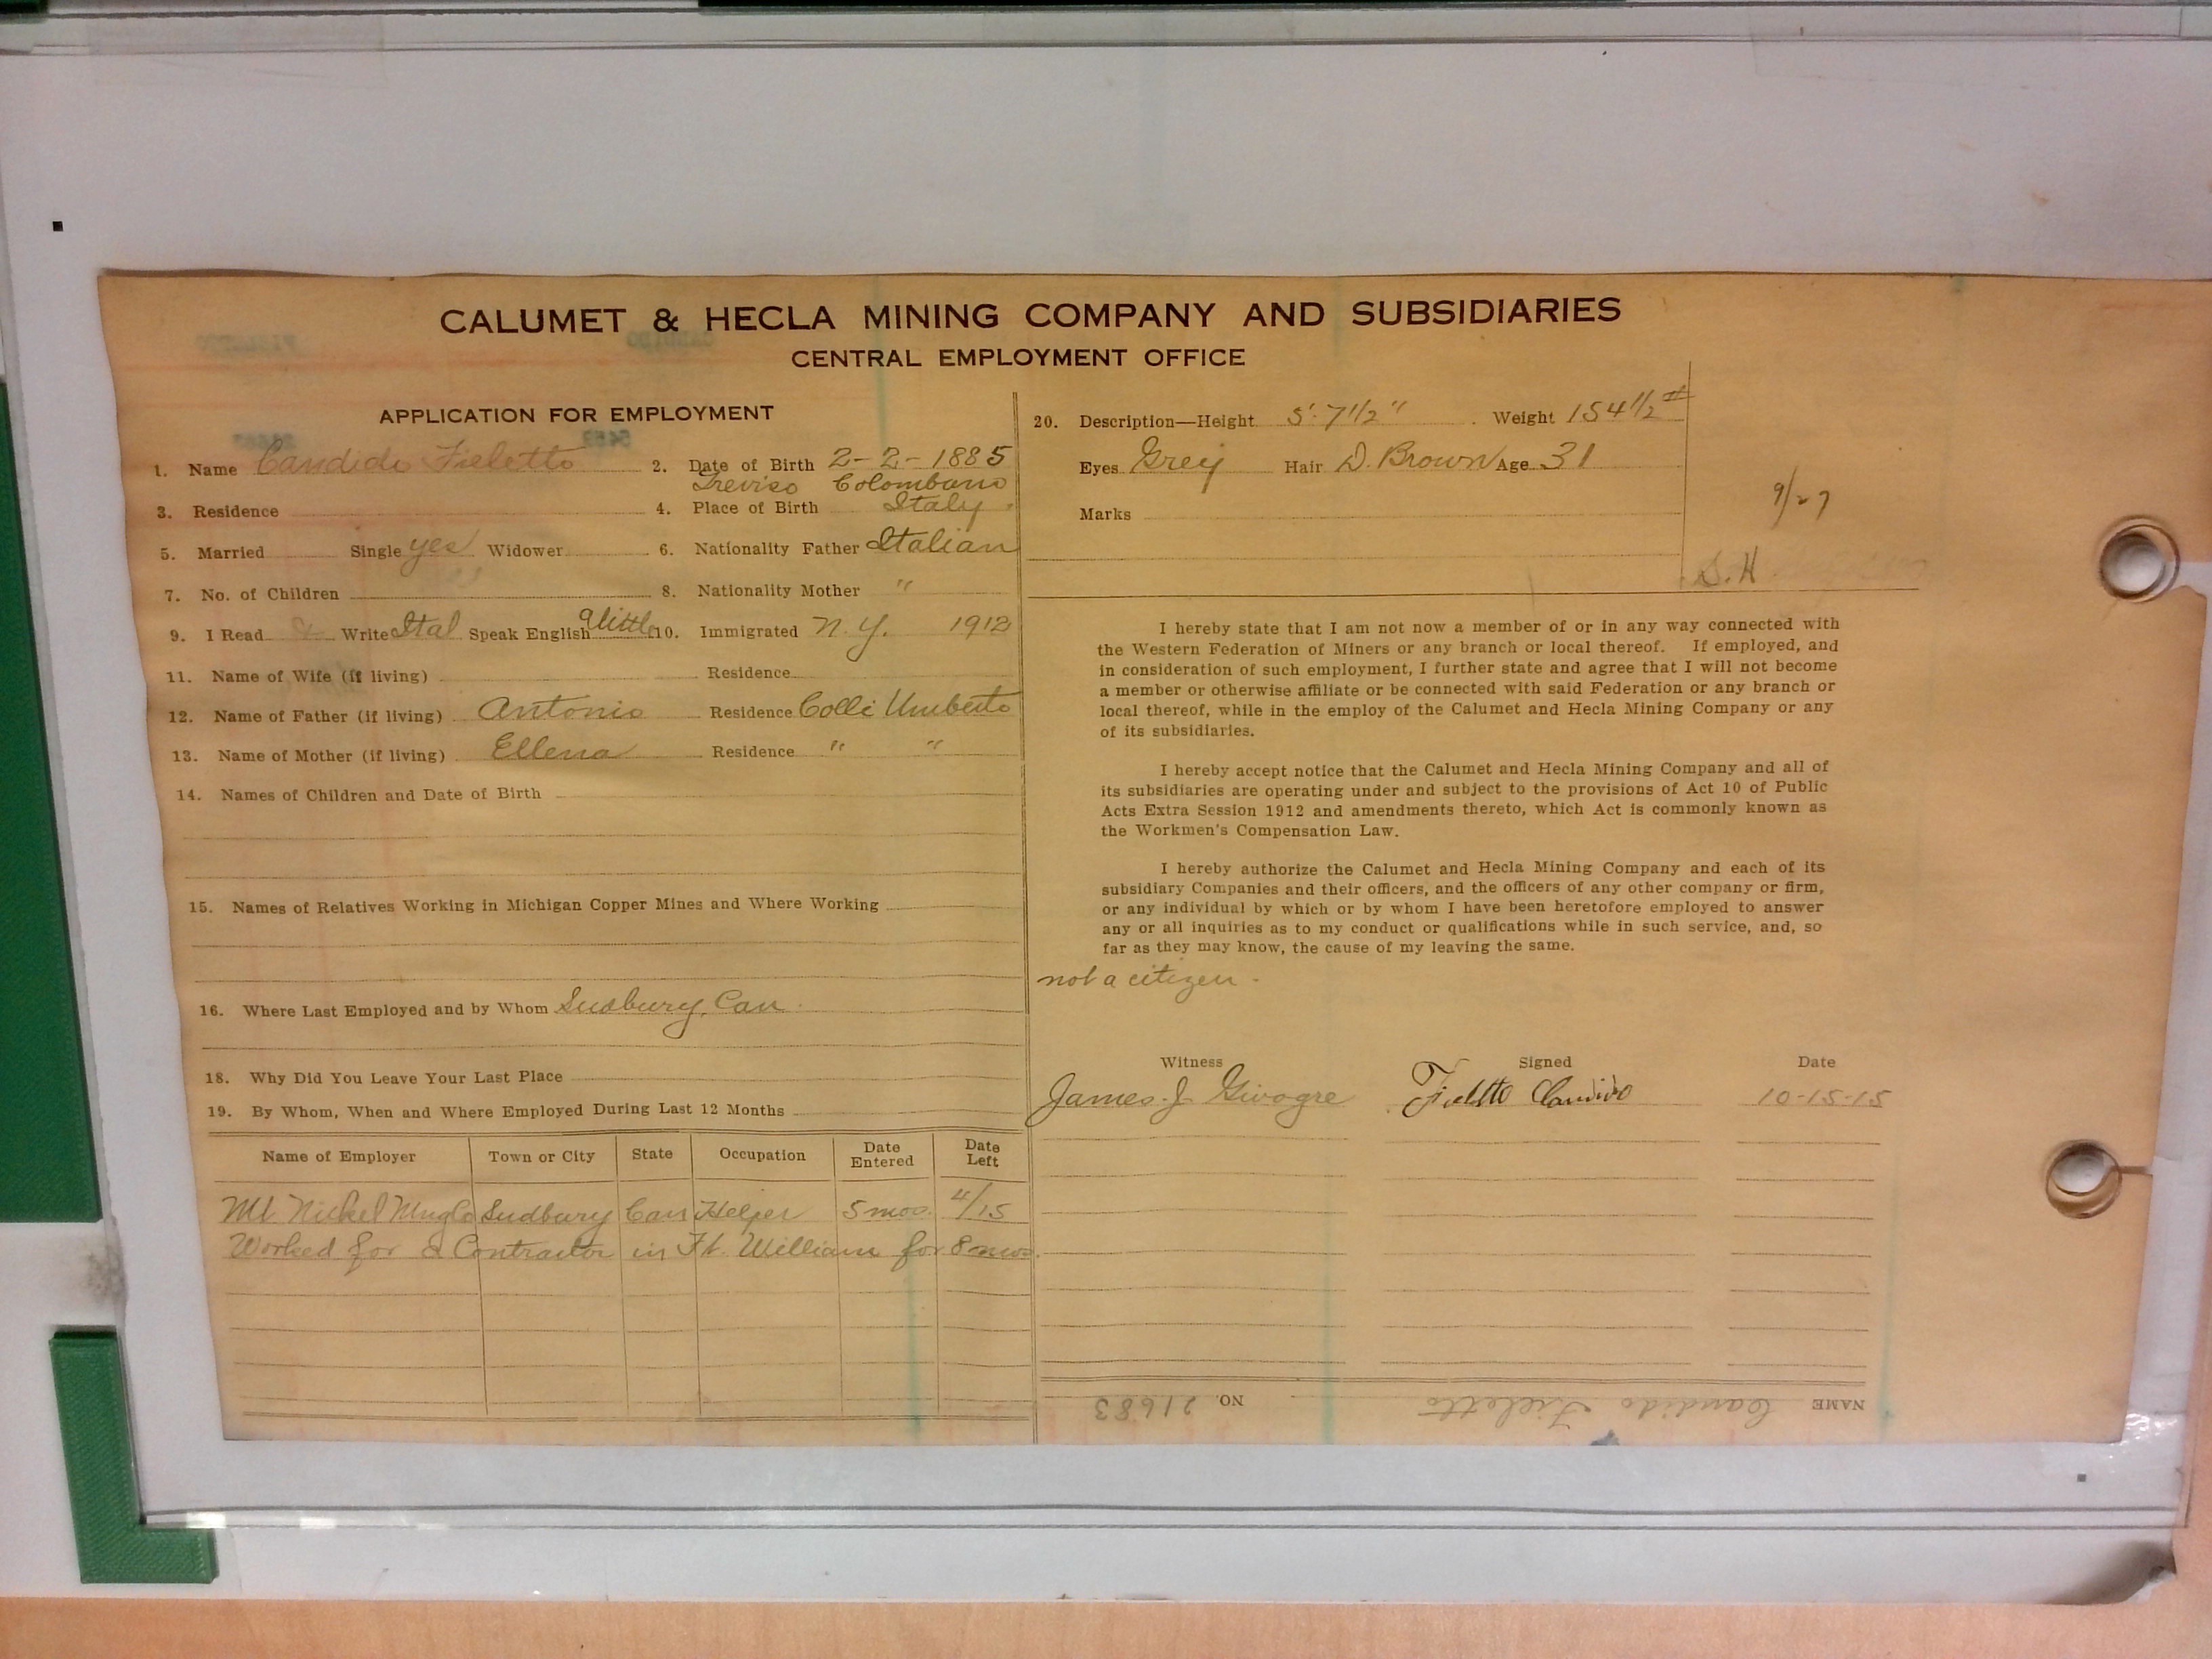 CALUMET & HECLA MINING COMPANY AND SUBSIDIARIES
CENTRAL EMPLOYMENT OFFICE
APPLICATION FOR EMPLOYMENT
1. Name Candido Fieletto 2. Date of Birth 2-2-1885
Treviso Colombano
3. Residence 4. Place of Birth Italy
5. Married Single yes Widower 6. Nationality Father Italian
7. No. of Children 8. Nationality Mother "
9. I Read & Write Ital Speak English a little 10. Immigrated N.Y. 1912
11. Name of Wife (if living) Residence
12. Name of Father (if living) Antonio Residence Colli Umberto
13. Name of Mother (if living) Ellena Residence " "
14. Names of Children and Date of Birth
15. Names of Relatives Working in Michigan Copper Mines and Where Working
16. Where Last Employed and by Whom Sudbury, Can.
18. Why Did You Leave Your Last Place
19. By Whom, When and Where Employed During Last 12 Months
Name of Employer Town or City State Occupation Date Entered Date Left
Mt Nickel Mng Co Sudbury Can Helper 5 mos. 4/15
Worked for a Contractor in Ft. William for 8 mos.
20. Description—Height 5' 7 1/2" Weight 154 1/2 #
Eyes Grey Hair D. Brown Age 31
Marks
9/27
S.H
I hereby state that I am not now a member of or in any way connected with
the Western Federation of Miners or any branch or local thereof. If employed, and
in consideration of such employment, I further state and agree that I will not become
a member or otherwise affiliate or be connected with said Federation or any branch or
local thereof, while in the employ of the Calumet and Hecla Mining Company or any
of its subsidiaries.
I hereby accept notice that the Calumet and Hecla Mining Company and all of
its subsidiaries are operating under and subject to the provisions of Act 10 of Public
Acts Extra Session 1912 and amendments thereto, which Act is commonly known as
the Workmen's Compensation Law.
I hereby authorize the Calumet and Hecla Mining Company and each of its
subsidiary Companies and their officers, and the officers of any other company or firm,
or any individual by which or by whom I have been heretofore employed to answer
any or all inquiries as to my conduct or qualifications while in such service, and, so
far as they may know, the cause of my leaving the same.
not a citizen.
Witness Signed Date
James J. Givogre Fieletto Candido 10-15-15
NAME Candido Fieletto NO. 21683